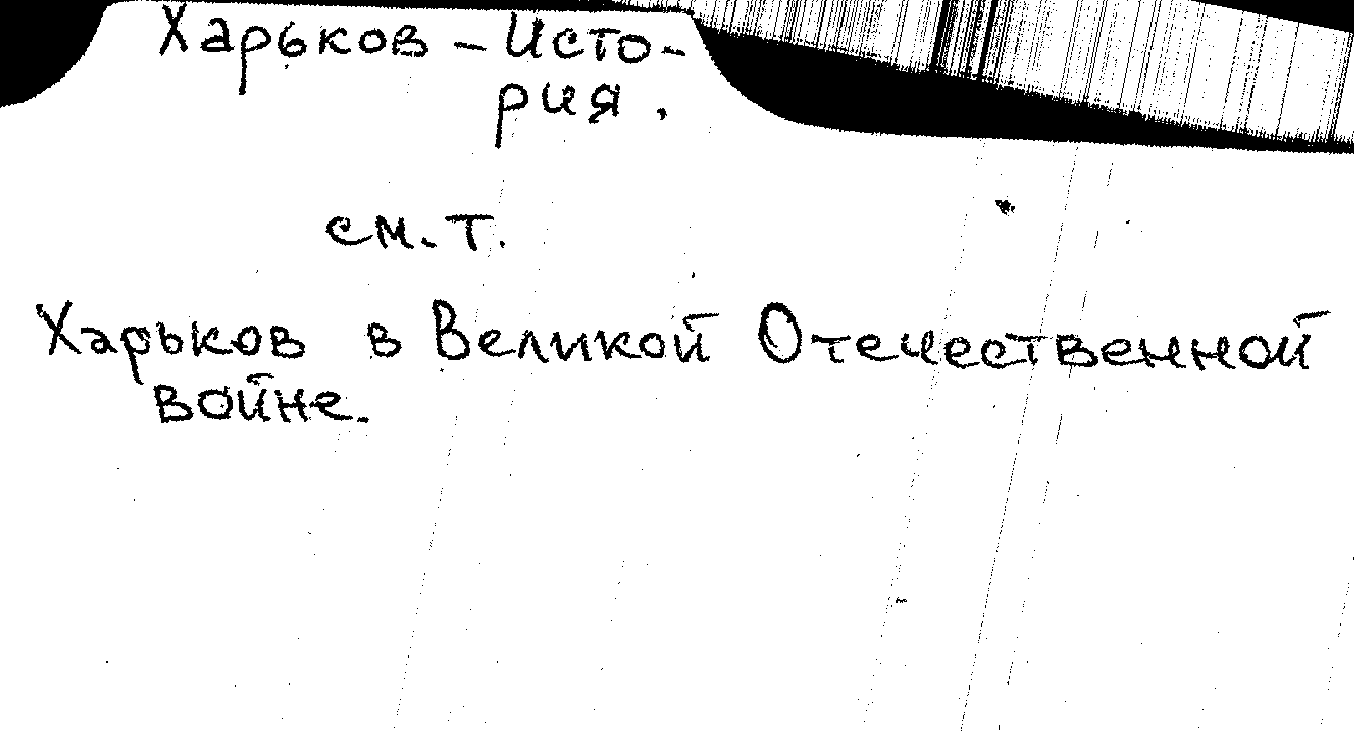 Харьков – Исто-
рия.
см. т.
Харьков в Великой Отечественной
войне.